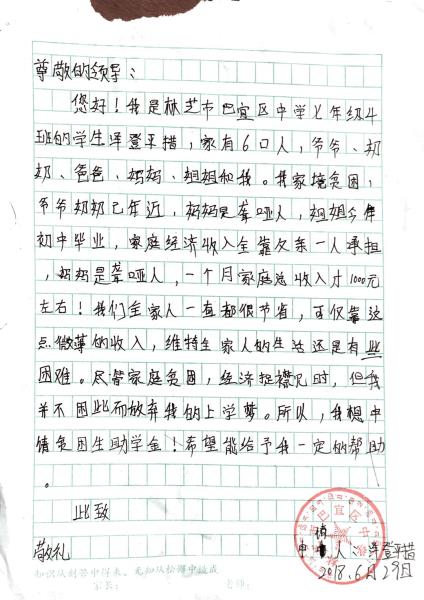 尊敬的领导：
您好！我是林芝市巴宜区中学七年级4
班的学生泽登平措，家有6口人，爷爷、奶
奶、爸爸、妈妈、姐姐和我。我家境贫困，
爷爷奶奶已年近，妈妈是聋哑人，姐姐今年
初中毕业，家庭经济收入全靠父亲一人承担
，妈妈是聋哑人，一个月家庭总收入才1000元
左右！我们全家人一直都很节省，可仅靠这
点微薄的收入，维持全家人的生活还是有些
困难。尽管家庭贫困，经济拮襟见时，但我
并不因此而放弃我的上学梦。所以，我想申
请贫困生助学金！希望能给予我一定的帮助
。
此致
敬礼
巴宜区中学
申请人：泽登平措
2018.6月29日
知识从刻苦中得来，无知从松懈中造成
家长： 老师：